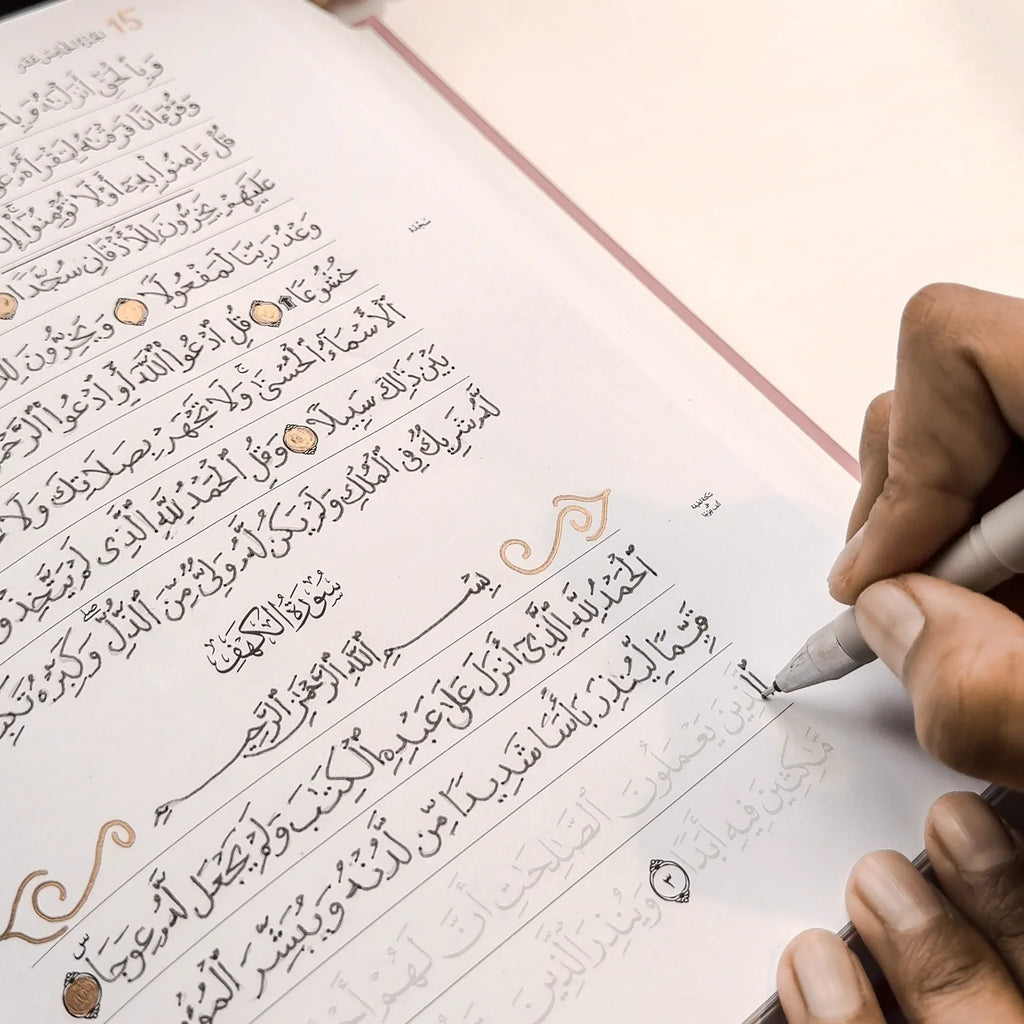 15
الجزء الخامس عشر
وَبِٱلْحَقِّ أَنزَلْنَٰهُ
وَقُرْءَانًا فَرَقْنَٰهُ لِتَقْرَأَهُۥ
قُلْ ءَامِنُوا۟ بِهِۦٓ أَوْ لَا تُؤْمِنُوٓا۟ ۚ إِنَّ
عَلَيْهِمْ يَخِرُّونَ لِلْأَذْقَانِ سُجَّدًا
وَعْدُ رَبِّنَا لَمَفْعُولًا وَيَخِرُّونَ
خُشُوعًا قُلِ ٱدْعُوا۟ ٱللَّهَ أَوِ ٱدْعُوا۟ ٱلرَّحْمَٰ
ٱلْأَسْمَآءُ ٱلْحُسْنَىٰ ۚ وَلَا تَجْهَرْ بِصَلَاتِكَ وَلَا
بَيْنَ ذَٰلِكَ سَبِيلًا وَقُلِ ٱلْحَمْدُ لِلَّهِ ٱلَّذِى لَمْ يَتَّخِذْ
لَّهُۥ شَرِيكٌ فِى ٱلْمُلْكِ وَلَمْ يَكُن لَّهُۥ وَلِىٌّ مِّنَ ٱلذُّلِّ ۖ وَكَبِّرْهُ
سُورَةُ الكَهْفِ
بِسْمِ ٱللَّهِ ٱلرَّحْمَٰنِ ٱلرَّحِيمِ
ٱلْحَمْدُ لِلَّهِ ٱلَّذِىٓ أَنزَلَ عَلَىٰ عَبْدِهِ ٱلْكِتَٰبَ وَلَمْ يَجْعَل لَّهُۥ عِوَجَا ۜ
قَيِّمًا لِّيُنذِرَ بَأْسًا شَدِيدًا مِّن لَّدُنْهُ وَيُبَشِّرَ
ٱلَّذِينَ يَعْمَلُونَ ٱلصَّٰلِحَٰتِ أَنَّ لَهُمْ
مَّٰكِثِينَ فِيهِ أَبَدًا ٣ وَيُنذِرَ ٱلَّذِينَ